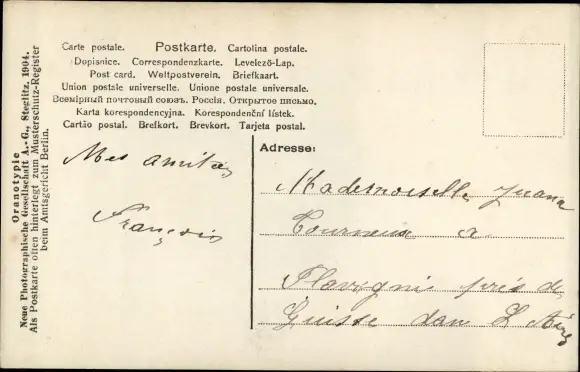 Oranotypie
Neue Photographische Gesellschaft A.-G., Steglitz, 1904.
Als Postkarte offen hinterlegt zum Musterschutz-Register
beim Amtsgericht Berlin.
Carte postale. Postkarte. Cartolina postale.
Dopisnice. Correspondenzkarte. Levelező-Lap.
Post card. Weltpostverein. Briefkaart.
Union postale universelle. Unione postale universale.
Всемірный почтовый союзъ. Россія. Открытое письмо.
Karta korespondencyjna. Korespondenční lístek.
Cartão postal. Brefkort. Brevkort. Tarjeta postal.
Mes amitiés
François
Adresse:
Mademoiselle Juana
Tourneux a
Flavignie près de
Guisse dan L